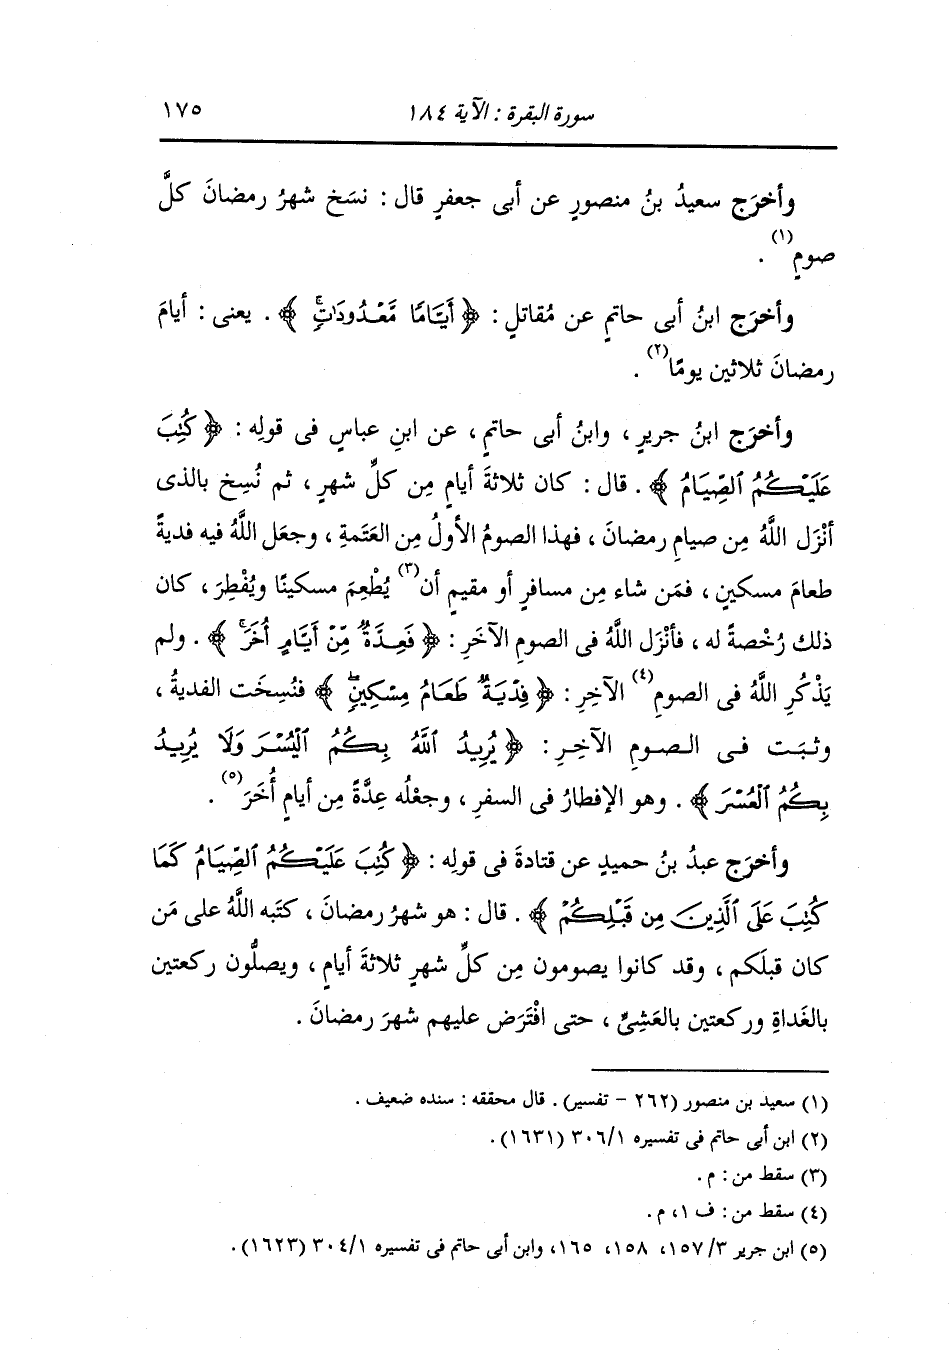 سورة البقرة : الآية ١٨٤ ١٧٥
وأخرَج سعيدُ بنُ منصورٍ عن أبى جعفرٍ قال : نسَخ شهرُ رمضانَ كلَّ
صومٍ(١) .
وأخرَج ابنُ أبى حاتمٍ عن مُقاتلٍ : ﴿ أَيَّامًا مَّعْدُودَاتٍۚ ﴾ . يعنى : أيامَ
رمضانَ ثلاثين يومًا(٢) .
وأخرَج ابنُ جريرٍ ، وابنُ أبى حاتمٍ ، عن ابنِ عباسٍ فى قولِه : ﴿ كُتِبَ
عَلَيْكُمُ ٱلصِّيَامُ ﴾ . قال : كان ثلاثةَ أيامٍ مِن كلِّ شهرٍ ، ثم نُسِخ بالذى
أنْزَل اللَّهُ مِن صيامِ رمضانَ ، فهذا الصومُ الأولُ مِن العَتَمةِ ، وجعَل اللَّهُ فيه فديةً
طعامَ مسكينٍ ، فمَن شاء مِن مسافرٍ أو مقيمٍ أن(٣) يُطْعِمَ مسكينًا ويُفْطِرَ ، كان
ذلك رُخْصةً له ، فأنْزَل اللَّهُ فى الصومِ الآخَرِ : ﴿ فَعِدَّةٌ مِّنْ أَيَّامٍ أُخَرَۚ ﴾ . ولم
يَذْكُرِ اللَّهُ فى الصومِ(٤) الآخِرِ : ﴿ فِدْيَةٌ طَعَامُ مِسْكِينٍۖ ﴾ فنُسِخَت الفديةُ ،
وثبَت فى الصومِ الآخِرِ : ﴿ يُرِيدُ ٱللَّهُ بِكُمُ ٱلْيُسْرَ وَلَا يُرِيدُ
بِكُمُ ٱلْعُسْرَ ﴾ . وهو الإفطارُ فى السفرِ ، وجعْلُه عِدَّةً مِن أيامٍ أُخَرَ(٥) .
وأخرَج عبدُ بنُ حميدٍ عن قتادةَ فى قولِه : ﴿ كُتِبَ عَلَيْكُمُ ٱلصِّيَامُ كَمَا
كُتِبَ عَلَى ٱلَّذِينَ مِن قَبْلِكُمْ ﴾ . قال : هو شهرُ رمضانَ ، كتَبه اللَّهُ على مَن
كان قبلَكم ، وقد كانوا يصومون مِن كلِّ شهرٍ ثلاثةَ أيامٍ ، ويصلُّون ركعتين
بالغَداةِ وركعتين بالعَشِىِّ ، حتى افْتَرَض عليهم شهرَ رمضانَ .
(١) سعيد بن منصور (٢٦٢ - تفسير) . قال محققه : سنده ضعيف .
(٢) ابن أبى حاتم فى تفسيره ٣٠٦/١ (١٦٣١) .
(٣) سقط من : م .
(٤) سقط من : ف ١، م .
(٥) ابن جرير ٣/ ١٥٧، ١٥٨، ١٦٥، وابن أبى حاتم فى تفسيره ٣٠٤/١ (١٦٢٣) .